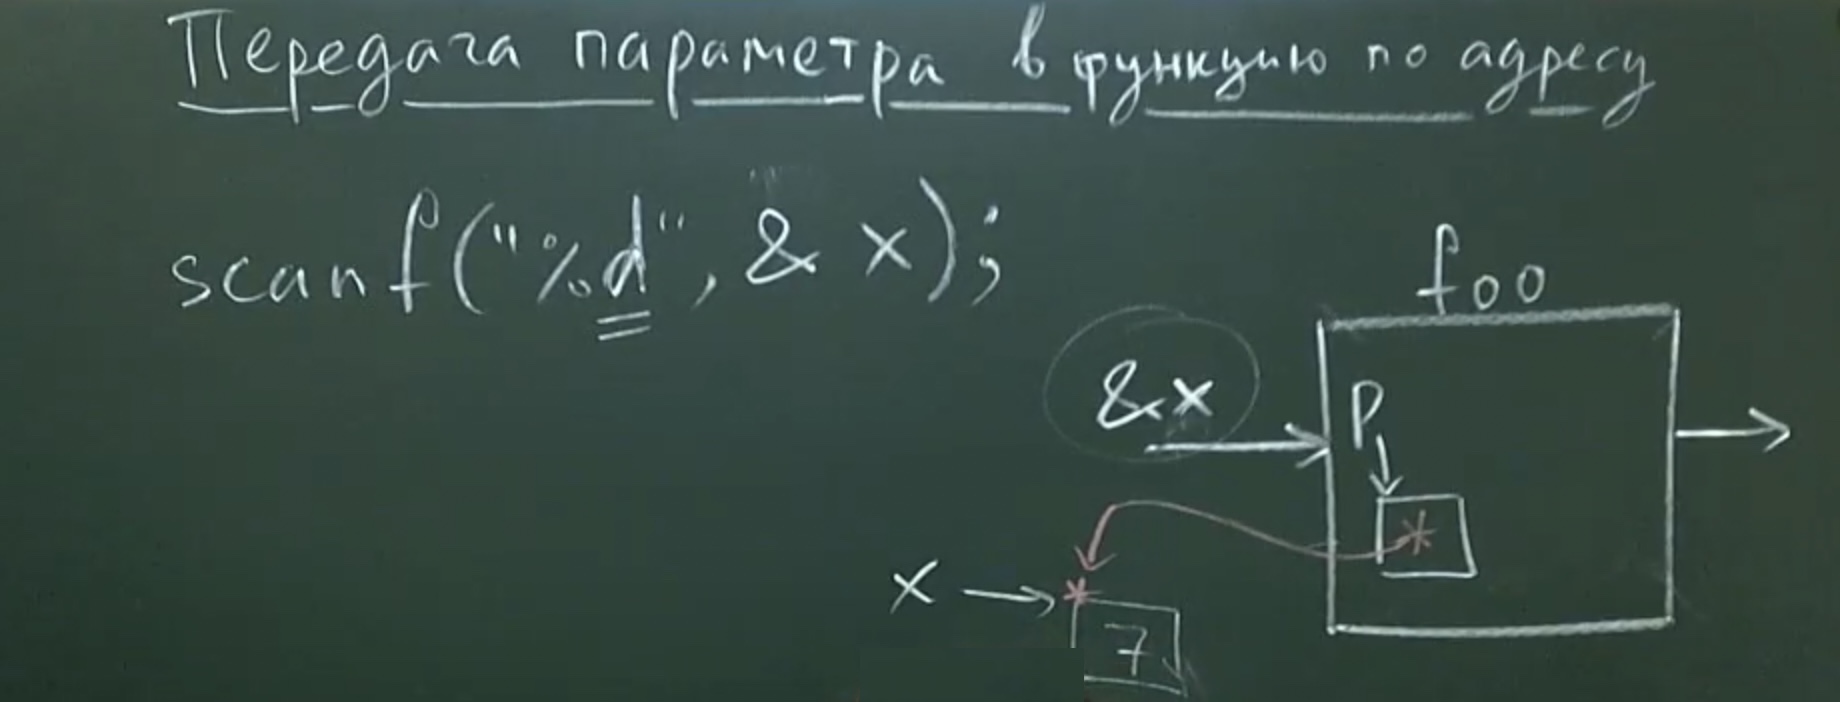 Передача параметра в функцию по адресу
scanf("%d", & x);
foo
&x
p
*
x
*
7